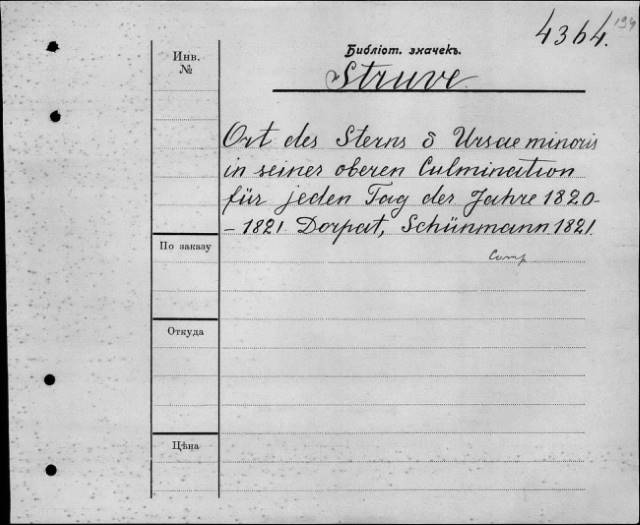 4364.
Библіот. значекъ.
Struve
Инв.
№
Ort des Sterns δ Ursae minoris
in seiner oberen Culmination
für jeden Tag der Jahre 1820-
- 1821. Dorpat, Schünmann 1821.
По заказу
Откуда
Цѣна